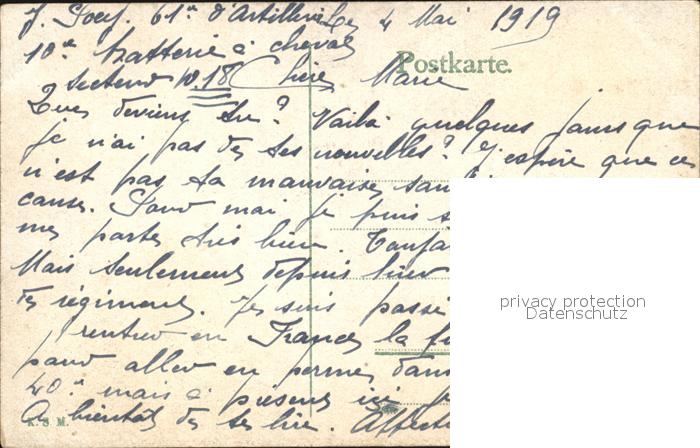 J. Socy. 61e d'Artillerie Le 4 Mai 1919
10e batterie à cheval
Postkarte.
secteur No 18 Chère Marie
Que deviens tu? Voilà quelques jours que
je n'ai pas de tes nouvelles? J'espère que ce
n'est pas ta mauvaise
cause. Pour moi je puis
me porte très bien.
Mais seulement depuis hier
de régiment. Je suis passé
rentrer en France la
pour aller en perme dans
40e mais à présent ici
A bientôt de te lire.
K. S. M.
privacy protection
Datenschutz